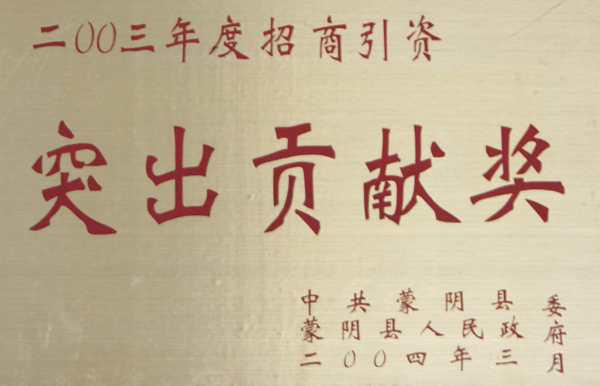 二00三年度招商引资
突出贡献奖
中共蒙阴县委
蒙阴县人民政府
二00四年三月